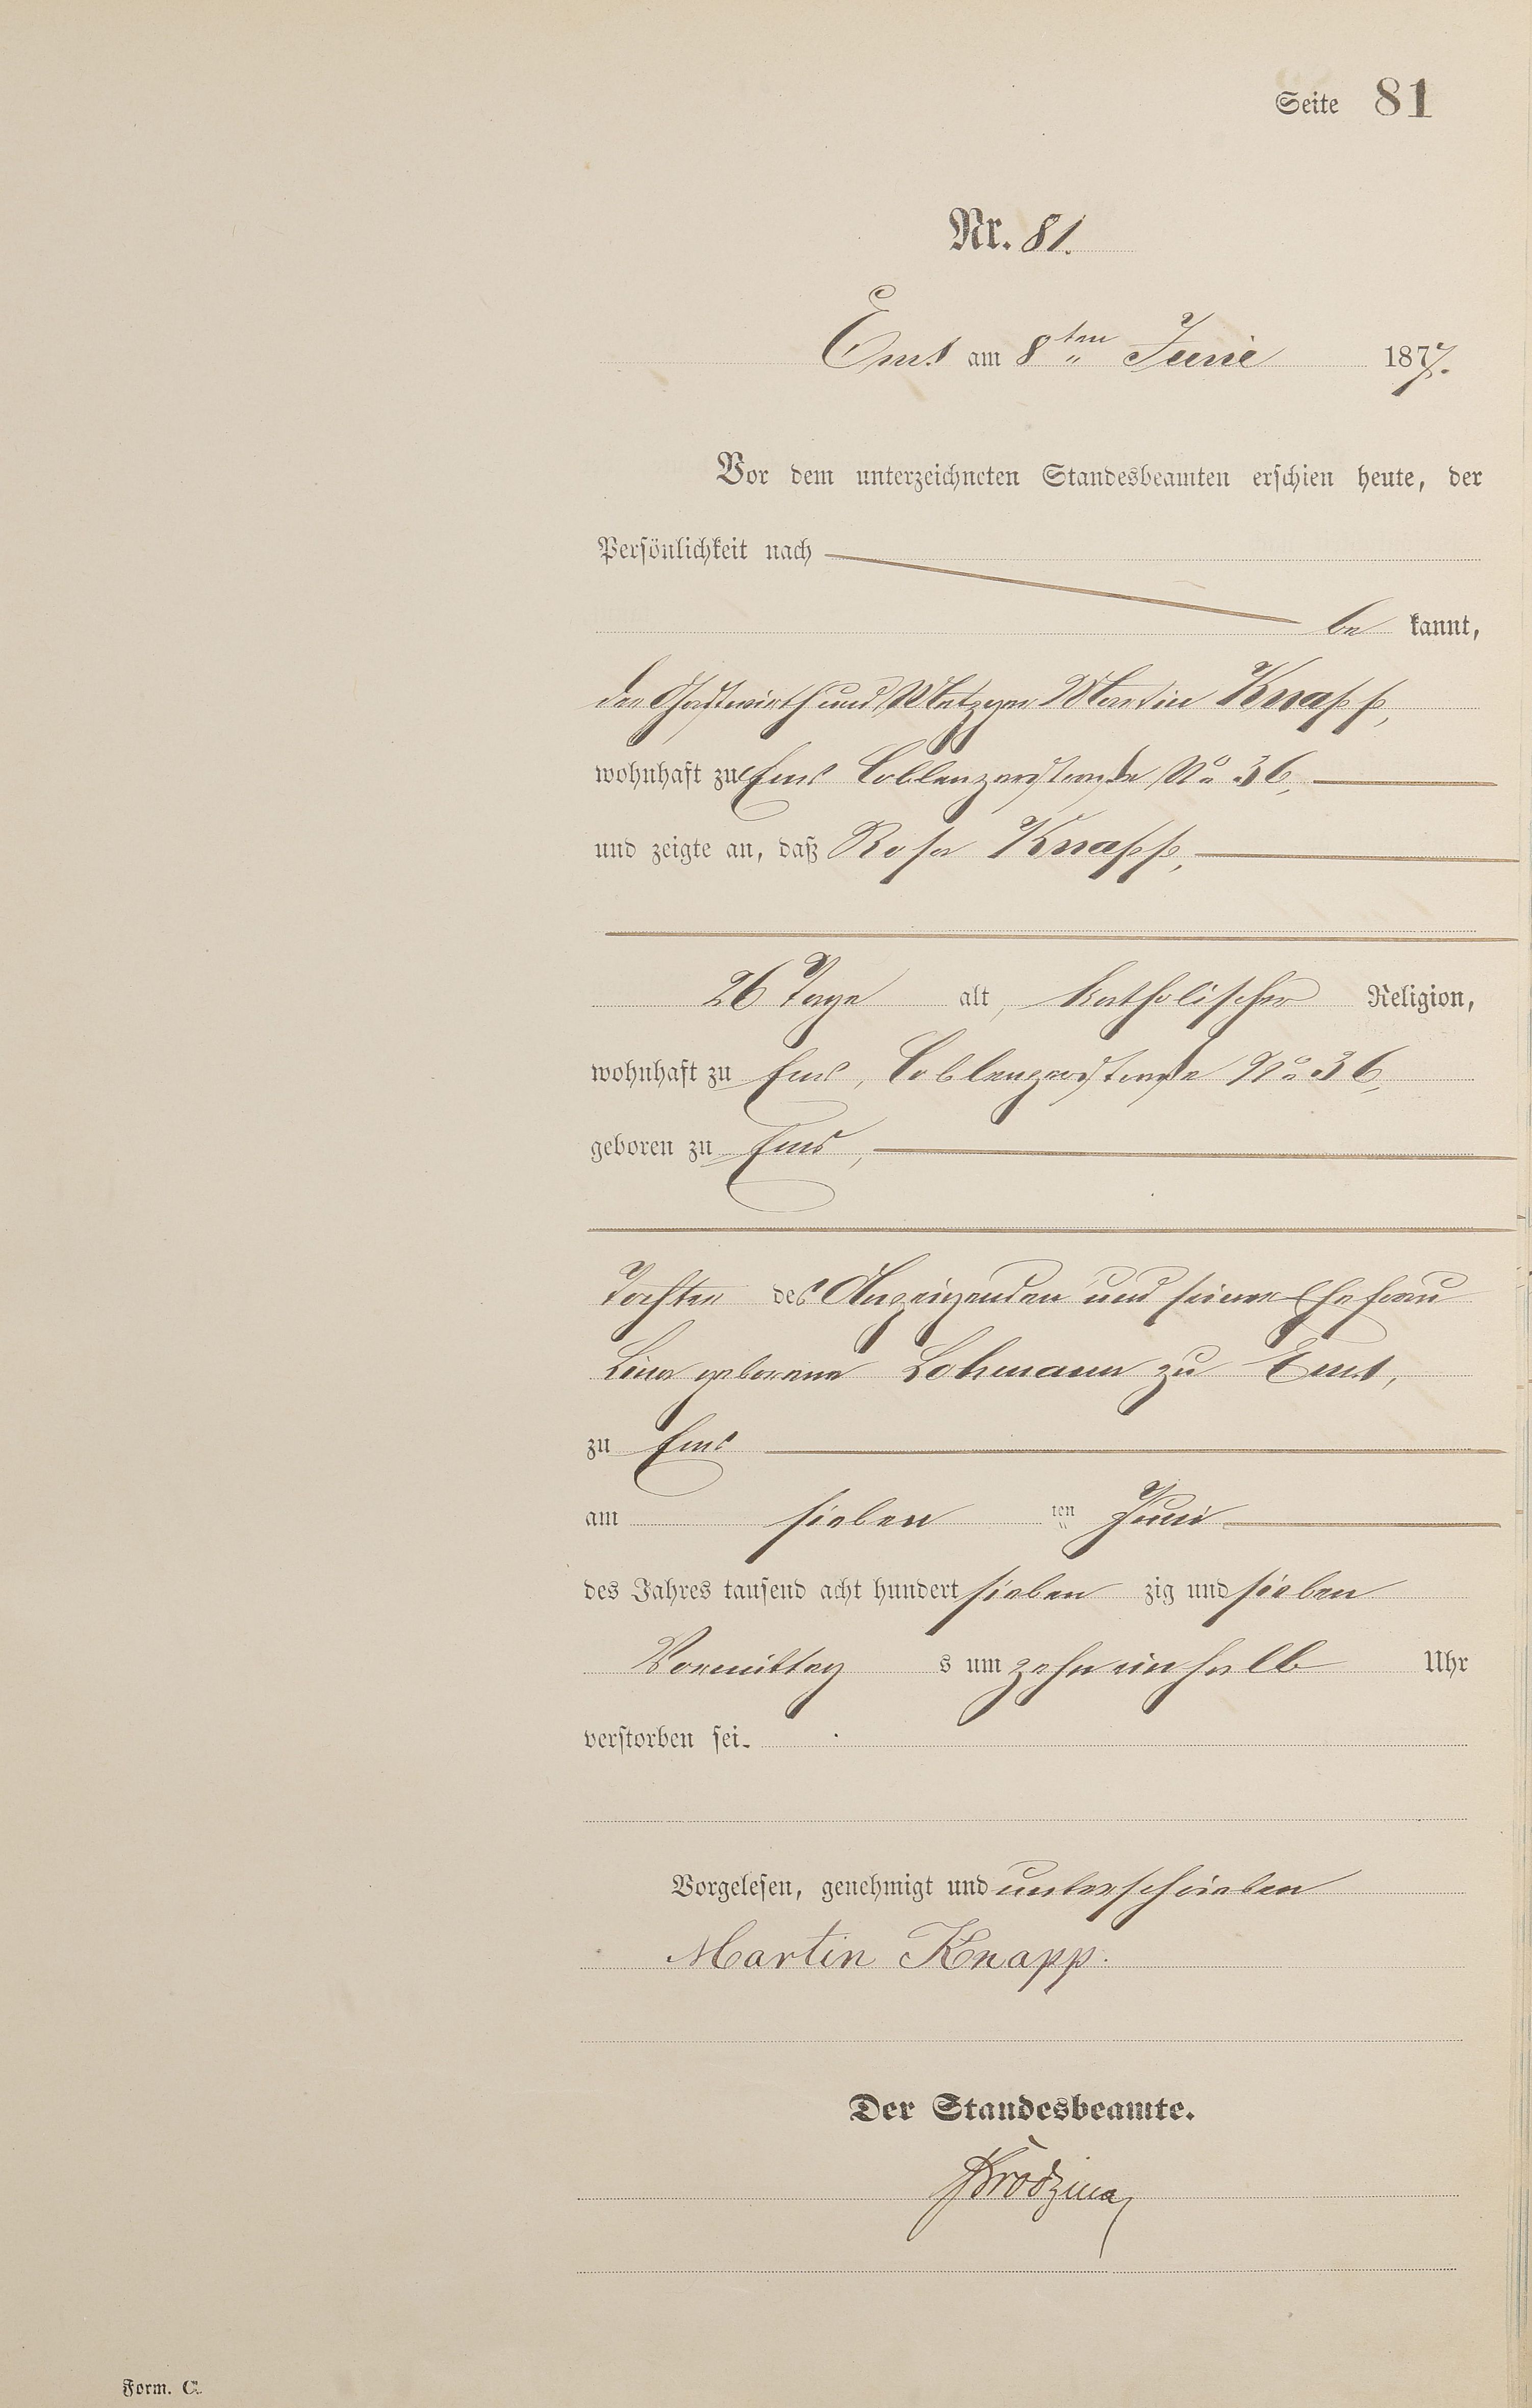 Seite 81
Nr. 81.
Ems am 8ten Junie 1877.
Vor dem unterzeichneten Standesbeamten erschien heute, der
Persönlichkeit nach
be kannt,
der Gastwirth und Metzger Martin Knapp,
wohnhaft zu Ems Coblenzerstraße No 36,
und zeigte an, daß Rosa Knapp,
26 Tage alt, katholischer Religion,
wohnhaft zu Ems, Coblenzerstraße No 36,
geboren zu Ems,
Tochter des Anzeigenden und seiner Ehefrau
Lina geborene Lohmann zu Ems,
zu Ems
am sieben ten Juni
des Jahres tausend acht hundert sieben zig und sieben
Vormittag s um zehn einhalb Uhr
verstorben sei.
Vorgelesen, genehmigt und unterschrieben
Martin Knapp.
Der Standesbeamte.
Form. C.